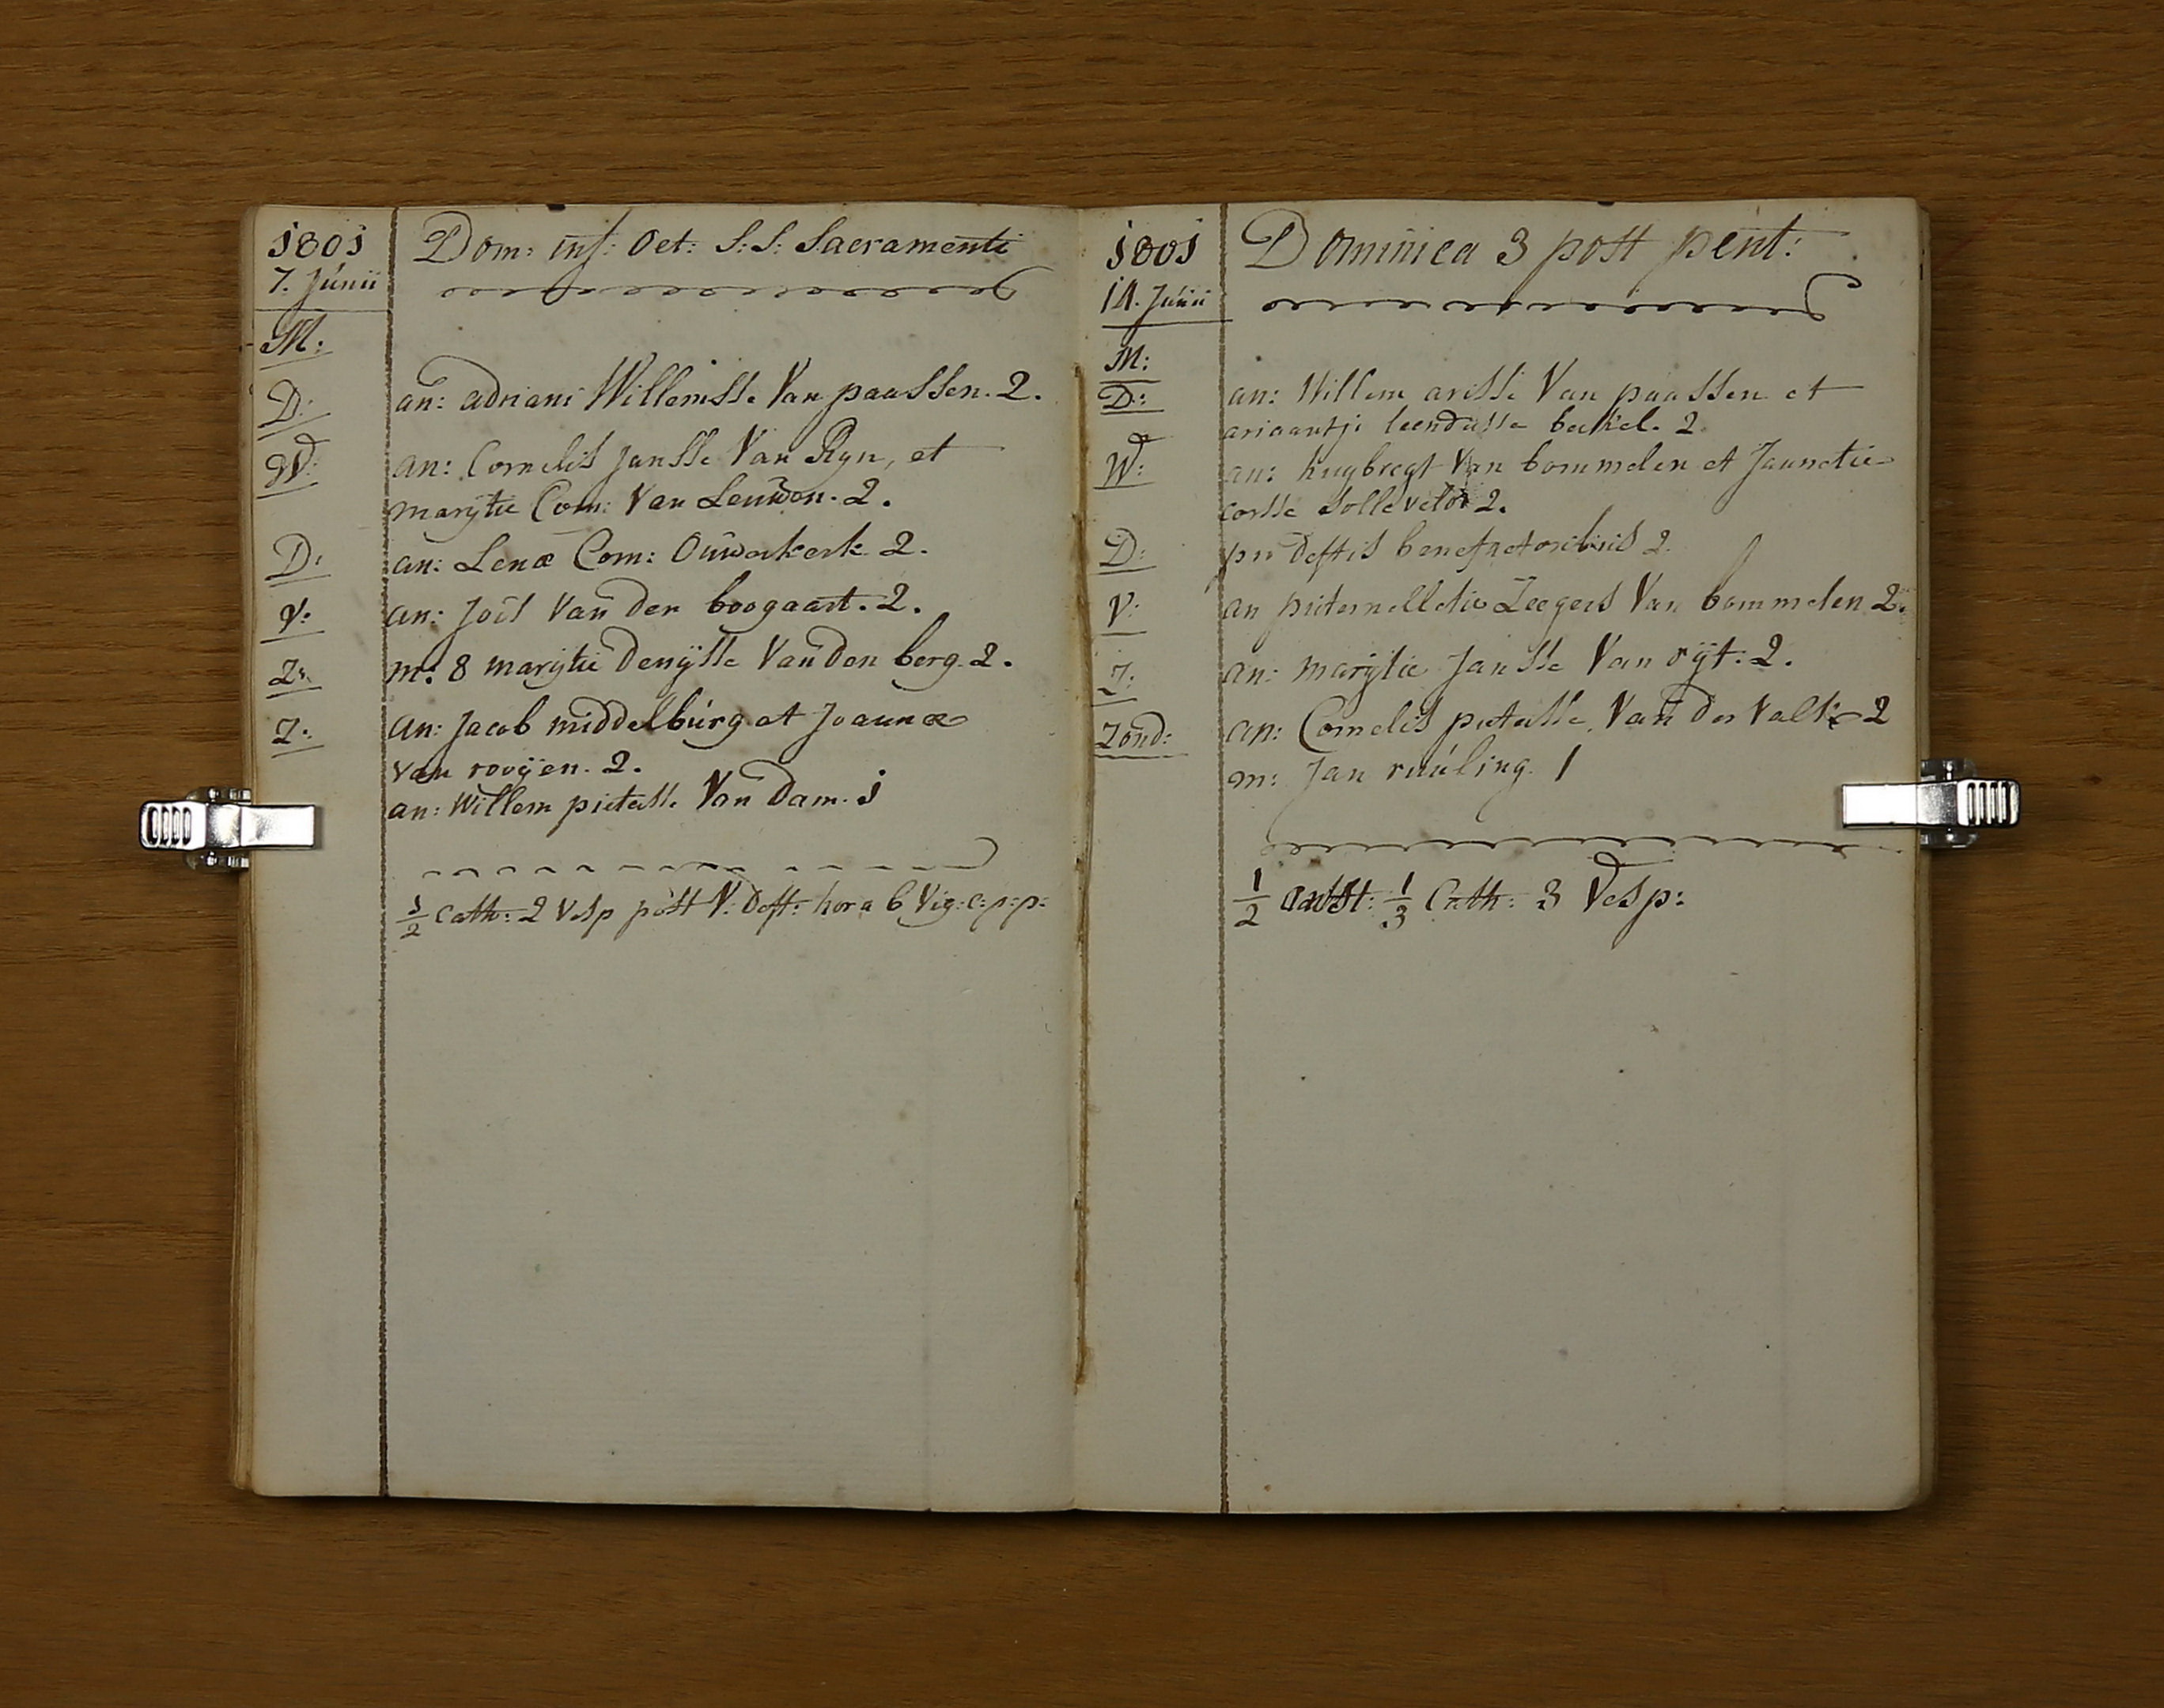 1801
7. Junii
Dom: inf: Oct: S:S: Sacramenti
M:
D: an: adriani Willemsse Van paassen. 2.
W: an: Cornelis Jansse Van Ryn, et
marijtie Corn: Van Leuwen. 2.
D: an: Lenæ Corn: Ouwerkerk 2.
V: an: Jois Van der boogaart. 2.
Z: m: 8 marijtie denijsse Van den berg. 2.
Z: an: Jacob middelburg et Joannæ
van rooijen. 2.
an: Willem pieterse Van dam. 1
1/2 Cath: 2 Vesp post V: deft: hora 6 Vig: c: p: p:
1801
14. Junii
Dominica 3 post pent:
M:
D: an: Willem arisse Van paassen et
ariaantje leendersse berkel. 2.
W: an: huybregt Van bommelen et Jannetie
corsse sollevelt 2.
D: pro deftis benefactoribus 2.
V: an pieternelletie Zeegers Van bommelen 2.
Z: an: marijtie Jansse Van rijt: 2.
Zond: an: Cornelis pieterse Van der Valk 2
m: Jan ruuling. 1
1/2 1/3 Cath: 3 Vesp: